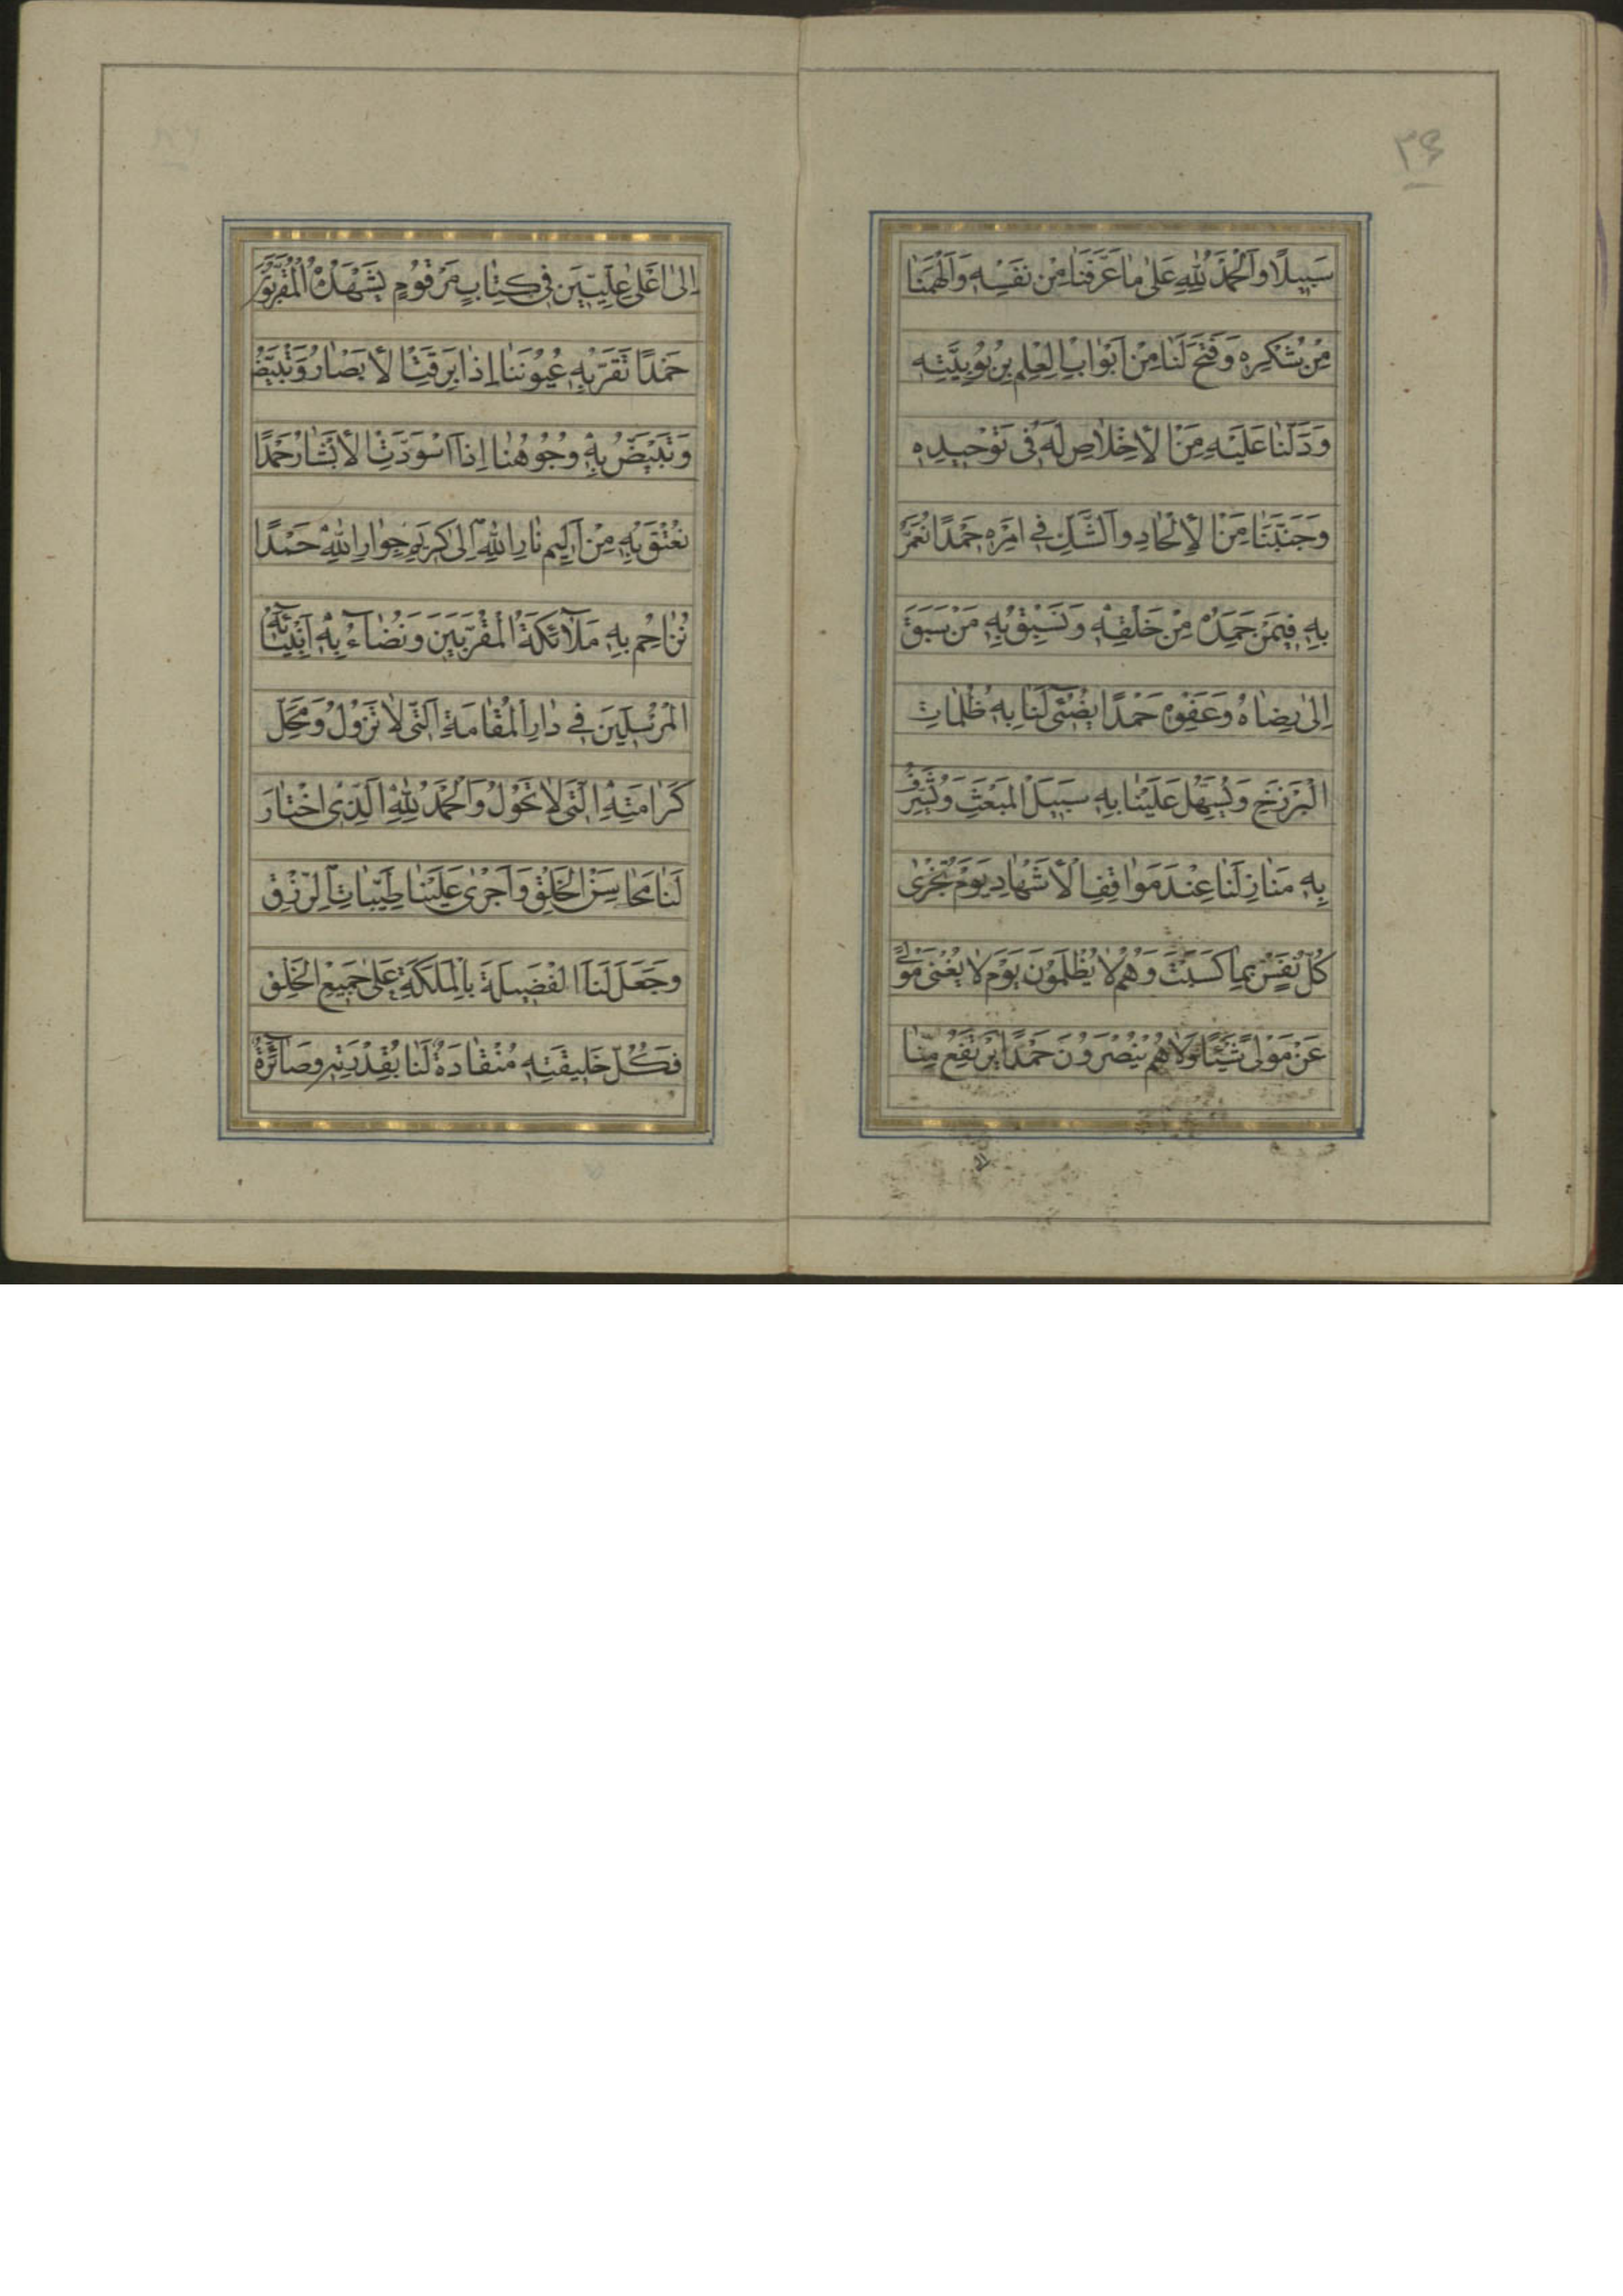 ۳۶
سَبِيلًا وَالْحَمْدُ لِلَّهِ عَلىٰ مٰا عَرَّفَنٰا مِنْ نَفْسِهِ وَاَلْهَمَنٰا
مِنْ شُكْرِهِ وَفَتَحَ لَنٰا مِنْ اَبْوٰابِ الْعِلْمِ بِرُبُوبِيَّتِهِ
وَدَلَّنٰا عَلَيْهِ مِنَ الْاِخْلٰاصِ لَهُ فِى تَوْحِيدِهِ
وَجَنَّبَنٰا مِنَ الْاِلْحٰادِ وَالشَّكِّ فِى اَمْرِهِ حَمْدًا نُعَمَّرُ
بِهِ فِيمَنْ حَمِدَهُ مِنْ خَلْقِهِ وَنَسْبِقُ بِهِ مَنْ سَبَقَ
اِلىٰ رِضٰاهُ وَعَفْوِهِ حَمْدًا يُضِىءُ لَنٰا بِهِ ظُلُمٰاتِ
الْبَرْزَخِ وَيُسَهِّلُ عَلَيْنٰا بِهِ سَبِيلَ الْمَبْعَثِ وَيُشَرِّفُ
بِهِ مَنٰازِلَنٰا عِنْدَ مَوٰاقِفِ الْاَشْهٰادِ يَوْمَ تُجْزىٰ
كُلُّ نَفْسٍ بِمٰا كَسَبَتْ وَهُمْ لٰا يُظْلَمُونَ يَوْمَ لٰا يُغْنِى مَوْلىً
عَنْ مَوْلىً شَيْئًا وَلٰا هُمْ يُنْصَرُونَ حَمْدًا يَرْتَفِعُ مِنّٰا
اِلىٰ اَعْلىٰ عِلِّيِّينَ فِى كِتٰابٍ مَرْقُومٍ يَشْهَدُهُ الْمُقَرَّبُونَ
حَمْدًا تَقَرُّ بِهِ عُيُونُنٰا اِذٰا بَرِقَتِ الْاَبْصٰارُ وَتَبْيَضُّ
وَتَبْيَضُّ بِهِ وُجُوهُنٰا اِذَا اسْوَدَّتِ الْاَبْشٰارُ حَمْدًا
نُعْتَقُ بِهِ مِنْ اَلِيمِ نٰارِ اللهِ اِلىٰ كَرِيمِ جِوٰارِ اللهِ حَمْدًا
نُزٰاحِمُ بِهِ مَلٰٓائِكَةَ الْمُقَرَّبِينَ وَنُضٰآءُ بِهِ اَنْبِيٰآئَهُ
الْمُرْسَلِينَ فِى دٰارِ الْمُقٰامَةِ الَّتِى لٰا تَزُولُ وَمَحَلِّ
كَرٰامَتِهِ الَّتِى لٰا تَحُولُ وَالْحَمْدُ لِلَّهِ الَّذِى اخْتٰارَ
لَنٰا مَحٰاسِنَ الْخَلْقِ وَاَجْرىٰ عَلَيْنٰا طَيِّبٰاتِ الرِّزْقِ
وَجَعَلَ لَنَا الْفَضِيلَةَ بِالْمَلَكَةِ عَلىٰ جَمِيعِ الْخَلْقِ
فَكُلُّ خَلِيقَتِهِ مُنْقٰادَةٌ لَنٰا بِقُدْرَتِهِ وَصٰآئِرَةٌ